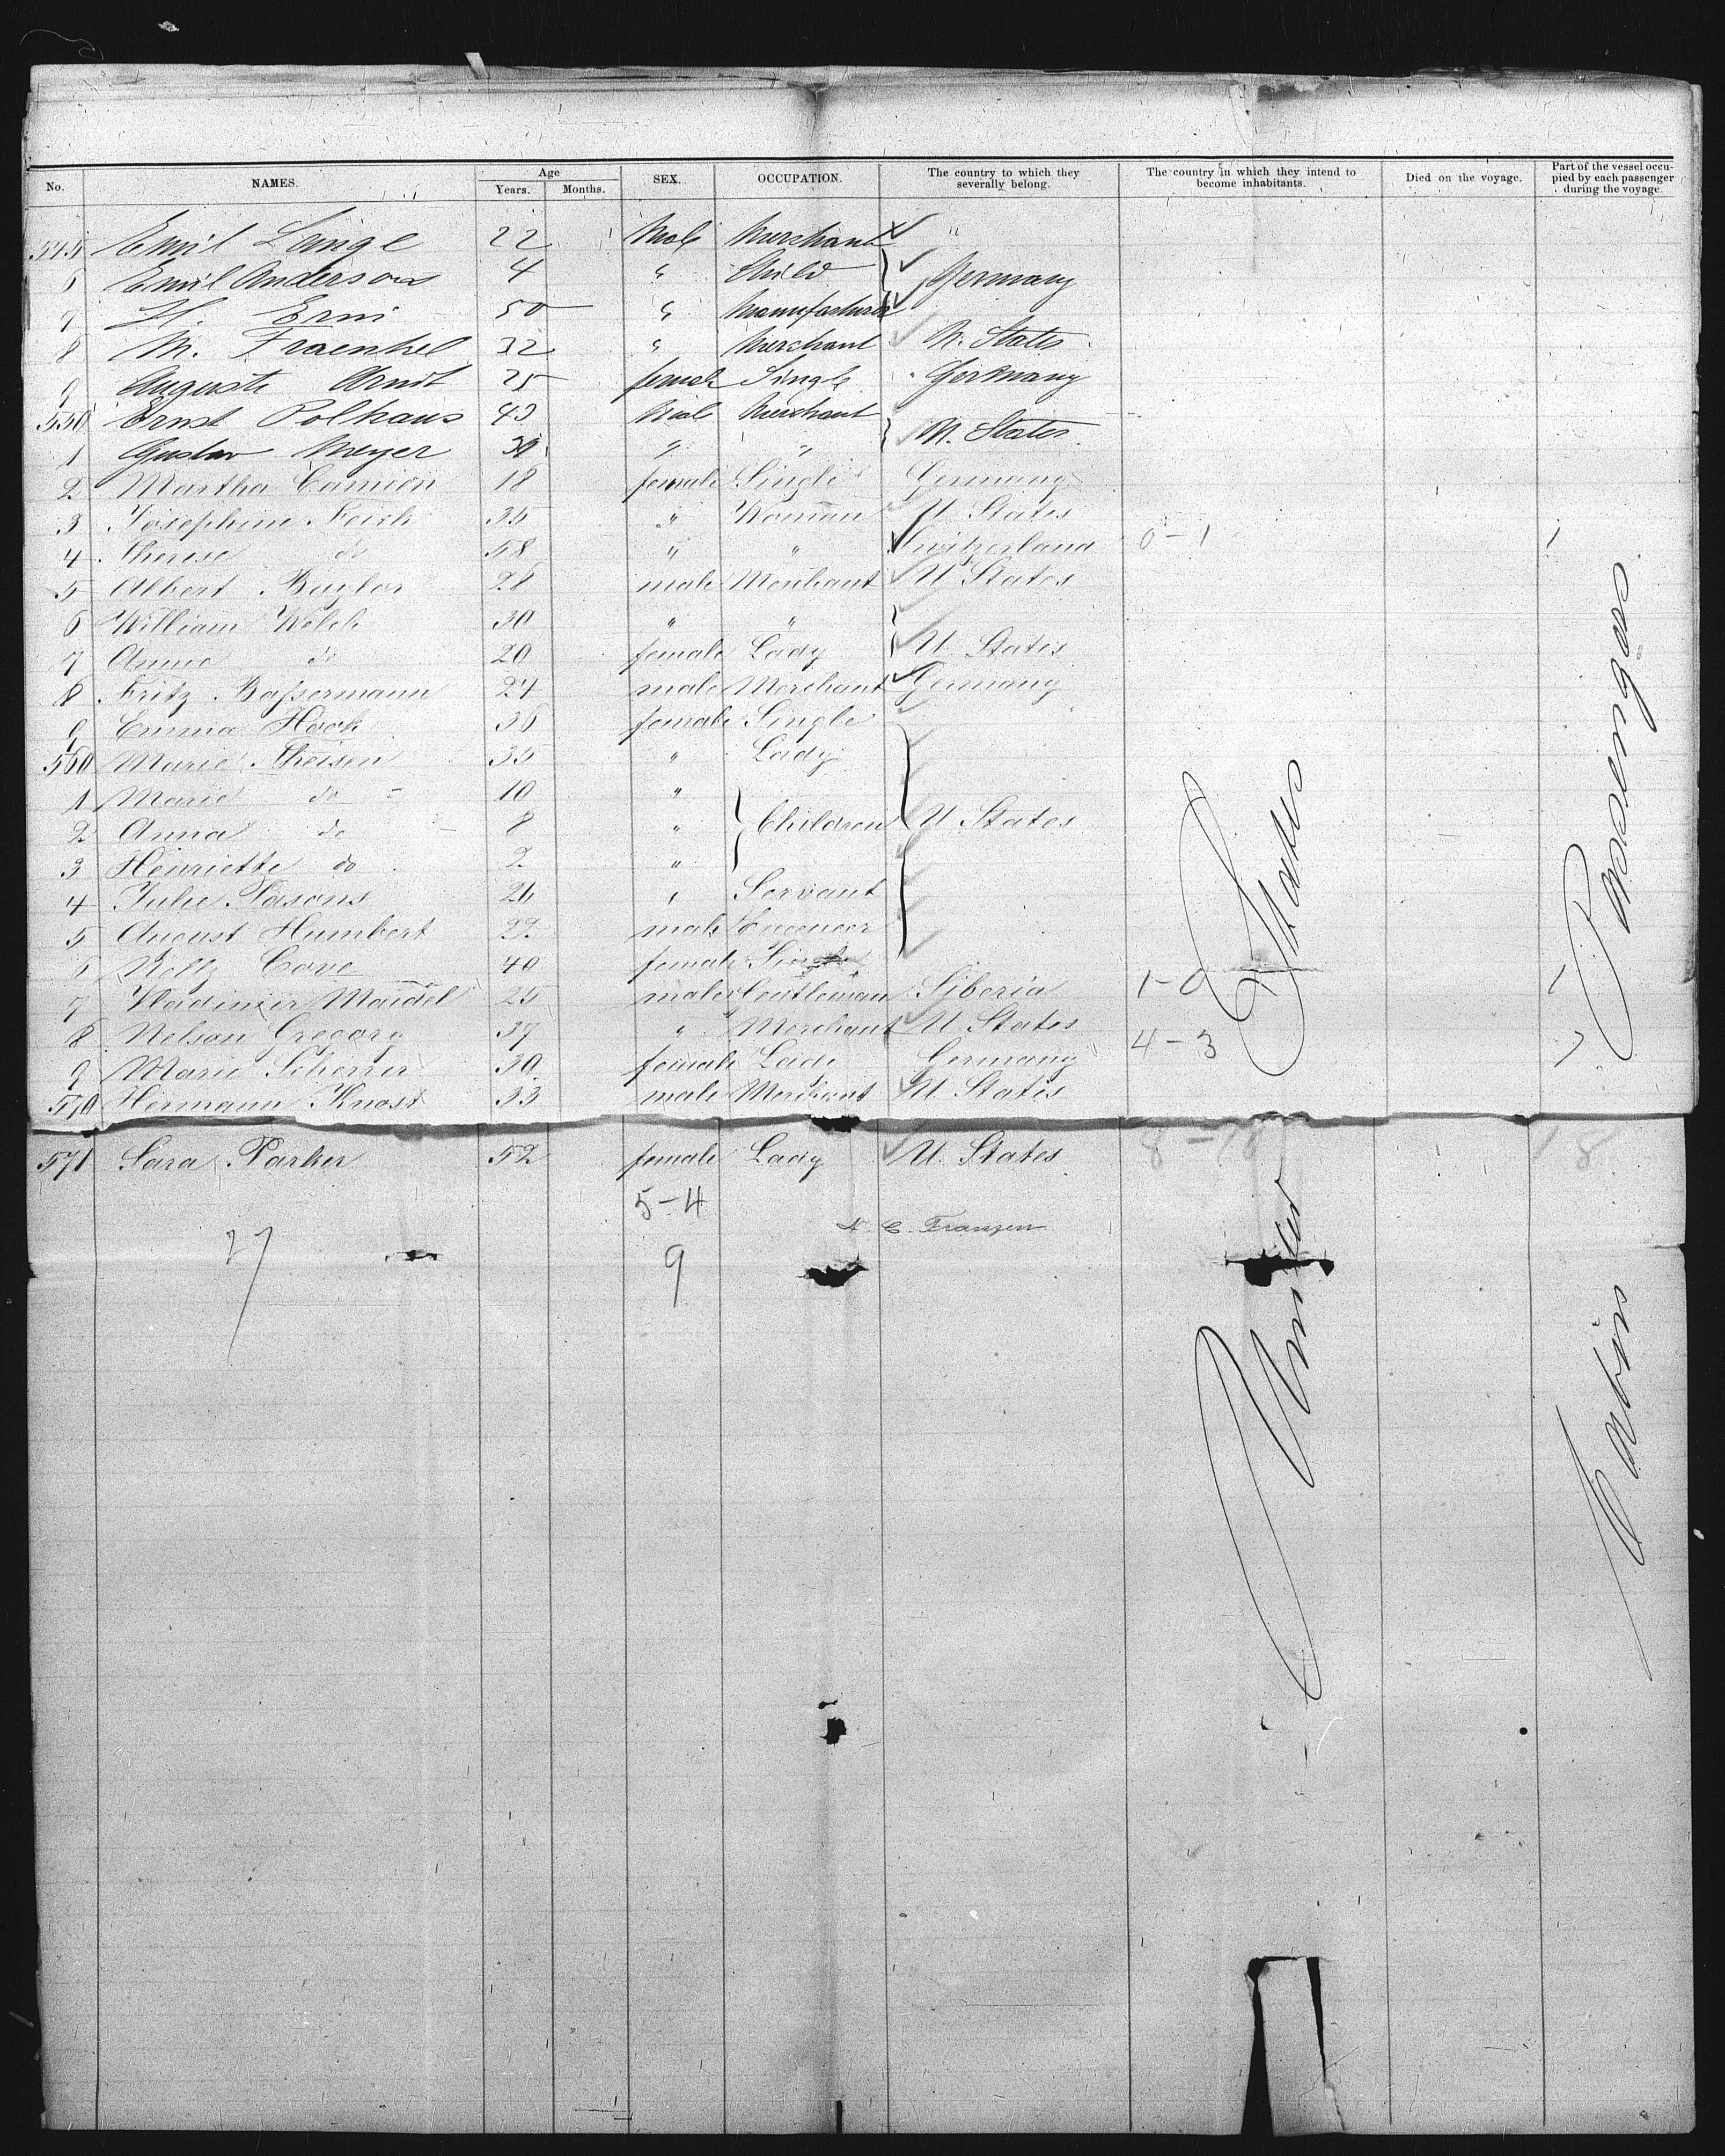 No. NAMES. Age Years. Months. SEX. OCCUPATION. The country to which they severally belong. The country in which they intend to become inhabitants. Died on the voyage. Part of the vessel occupied by each passenger during the voyage.
545 Emil Lange 22 Male Merchant "
6 Emil Anderson 4 " Child } Germany
7 H. Erni 50 " Manufacturer
8 M. Fraenkel 32 " Merchant U. States
9 Auguste Arndt 25 female Single Germany
550 Ernst Polhaus 43 Male Merchant
1 Gustav Meyer " " } U. States
2 Martha Camion 18 female Single Germany
3 Josephine Reich 35 " Woman U. States
4 Therese do 58 " " Switzerland 0-1 1
5 Albert Baylor 28 male Merchant U States
6 William Welch 30 " "
7 Anna do 20 female Lady } U. States
8 Fritz Bassermann 24 male Merchant Germany
9 Emma Hock 36 female Single
560 Marie Theisen 35 " Lady
1 Marie do 10 "
2 Anna do 8 " } Children U. States
3 Henriette do 2 "
4 Julie Pasons 26 " Servant
5 August Humbert 22 male Engineer
6 Nelly Cove 40 female Single
7 Wladimir Maidel 25 male Gentleman Siberia 1-0 1
8 Nelson Gregory 37 " Merchant U States
9 Marie Scherrer 30 female Lady Germany 4-3 7
570 Hermann Knost 33 male Merchant U. States
571 Sara Parker 52 female Lady U. States 18
5-4
N. C. Franzen
27
9
United States
Cabin Passengers